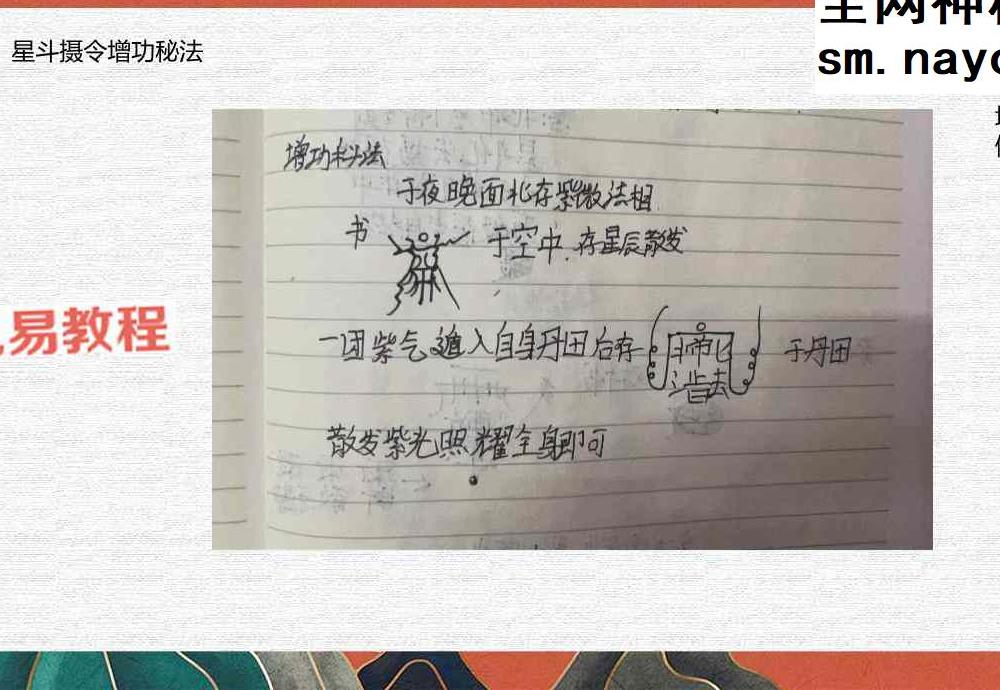 星斗摄令增功秘法
sm.nayc
易教程
增功秘法
于夜晚面北存紫微法相
书 于空中.存星辰散发
一团紫气遁入自身丹田后存 于丹田
散发紫光照耀全身即可